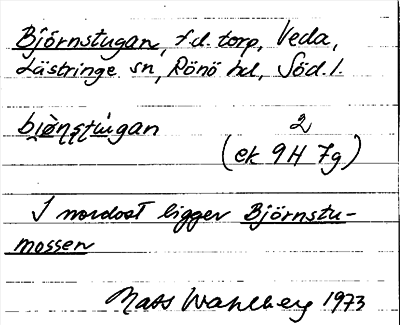 Björnstugan, f.d. torp, Veda,
Lästringe sn, Rönö hd, Söd. l.
bjö̀nstúgan 2
(ek 9H 7g)
I nordost ligger Björnstu-
mossen
Mats Wahlberg 1973